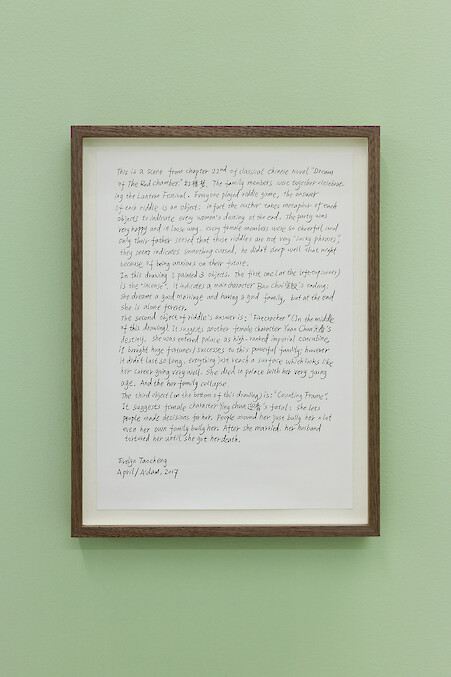 This is a scene from chapter 22nd of classical chinese novel "Dream
of The Red chamber" 红楼梦. The family members were together celebrat-
ing the Lantern Festival. Everyone played riddle game, the answer
of each riddle is an object; In fact the author takes metaphor of each
objects to indicate every women's destiny at the end. The party was
very happy and it loose way, every family members were so cheerful and
only their father sensed that those riddles are not very "lucky phrases",
they seems indicated something cursed, he didn't sleep well That night
because of being anxious on their future.
In this drawing I painted 3 objects. The first one (on the left top corner)
is the "incense". It indicates a main character Bao Chai 宝钗's ending;
she dreams a good marriage and having a good family, but at the end
she is alone forever.
The second object of riddle's answer is: "Firecracker" (In the middle
of this drawing). It suggests another female character Yuan Chun 元春's
destiny. she was entered palace as high-ranked imperial concubine,
it bought huge fortunes/ successes to this powerful family; however
it didn't last so long. Everything just reach a surface which looks like
her career going very well. She died in palace with her very young
age. And the her family collapse
The third object (on the bottom of this drawing) is: "Counting Frame".
It suggests female character Ying chun 迎春's total: she lets
people made decisions for her. People around her just bully her a lot
even her own family bully her. After she married, her husband
tortured her until she got her death.
Evelyn Taocheng
April/A'dam, 2017